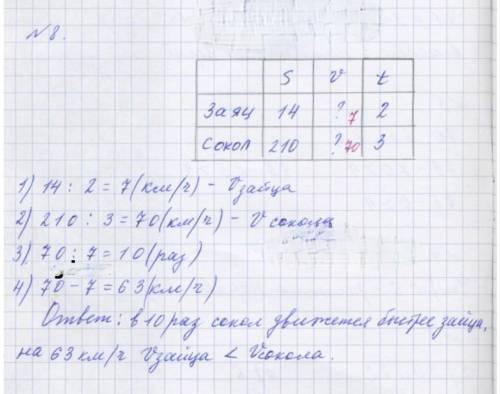 №8.
S v t
Заяц 14 ? 7 2
Сокол 210 ? 70 3
1) 14 : 2 = 7 (км/ч) - Vзайца
2) 210 : 3 = 70 (км/ч) - V сокола
3) 70 : 7 = 10 (раз)
4) 70 - 7 = 63 (км/ч)
Ответ: в 10 раз сокол движется быстрее зайца,
на 63 км/ч Vзайца < Vсокола.